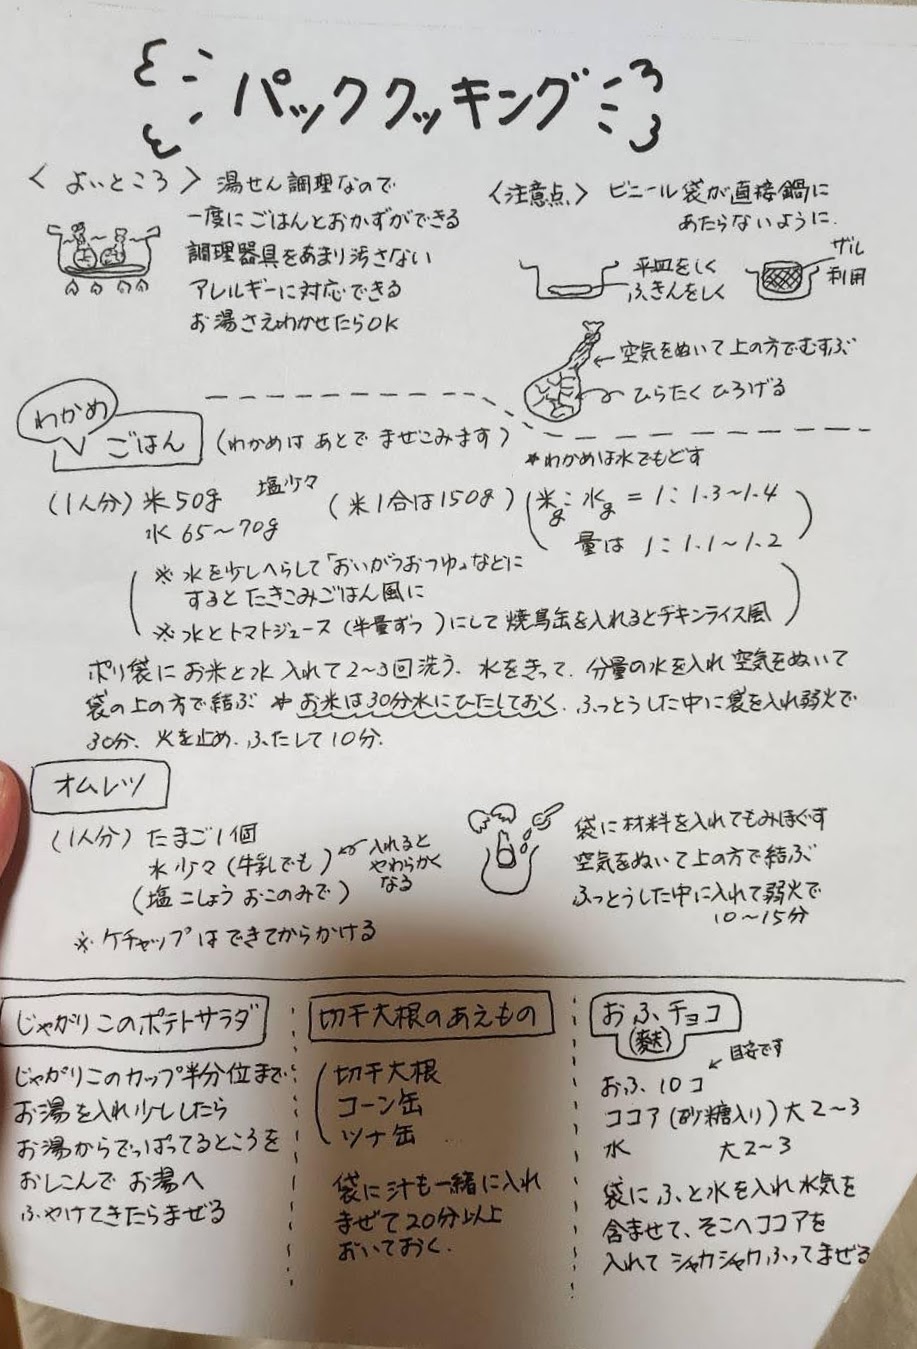 パッククッキング
〈よいところ〉 湯せん調理なので
一度にごはんとおかずができる
調理器具をあまり汚さない
アレルギーに対応できる
お湯さえわかせたらOK
〈注意点〉 ビニール袋が直接鍋に
あたらないように.
平皿をしく
ふきんをしく
ザル
利用
空気をぬいて上の方でむすぶ
ひらたくひろげる
わかめ
ごはん
(わかめはあとでまぜこみます)
*わかめは水でもどす
(1人分) 米50g 塩少々
水65〜70g
(米1合は150g)
(米g:水g=1:1.3〜1.4
量は 1:1.1〜1.2)
(※水を少しへらして「おいがつおつゆ」などに
するとたきこみごはん風に
※水とトマトジュース(半量ずつ)にして焼鳥缶を入れるとチキンライス風)
ポリ袋にお米と水入れて2〜3回洗う. 水をきって. 分量の水を入れ空気をぬいて
袋の上の方で結ぶ *お米は30分水にひたしておく. ふっとうした中に袋を入れ弱火で
30分. 火を止め. ふたして10分.
オムレツ
(1人分) たまご1個
水少々(牛乳でも)
入れると
やわらかく
なる
(塩こしょうおこのみで)
※ケチャップはできてからかける
袋に材料を入れてもみほぐす
空気をぬいて上の方で結ぶ
ふっとうした中に入れて弱火で
10〜15分
じゃがりこのポテトサラダ
じゃがりこのカップ半分位まで
お湯を入れ少ししたら
お湯からでっぱってるところを
おしこんでお湯へ
ふやけてきたらまぜる
切干大根のあえもの
切干大根
コーン缶
ツナ缶
袋に汁も一緒に入れ
まぜて20分以上
おいておく.
おふチョコ
(麩)
目安です
おふ 10コ
ココア(砂糖入り)大2〜3
水 大2〜3
袋にふと水を入れ水気を
含ませて、そこへココアを
入れてシャカシャカふってまぜる